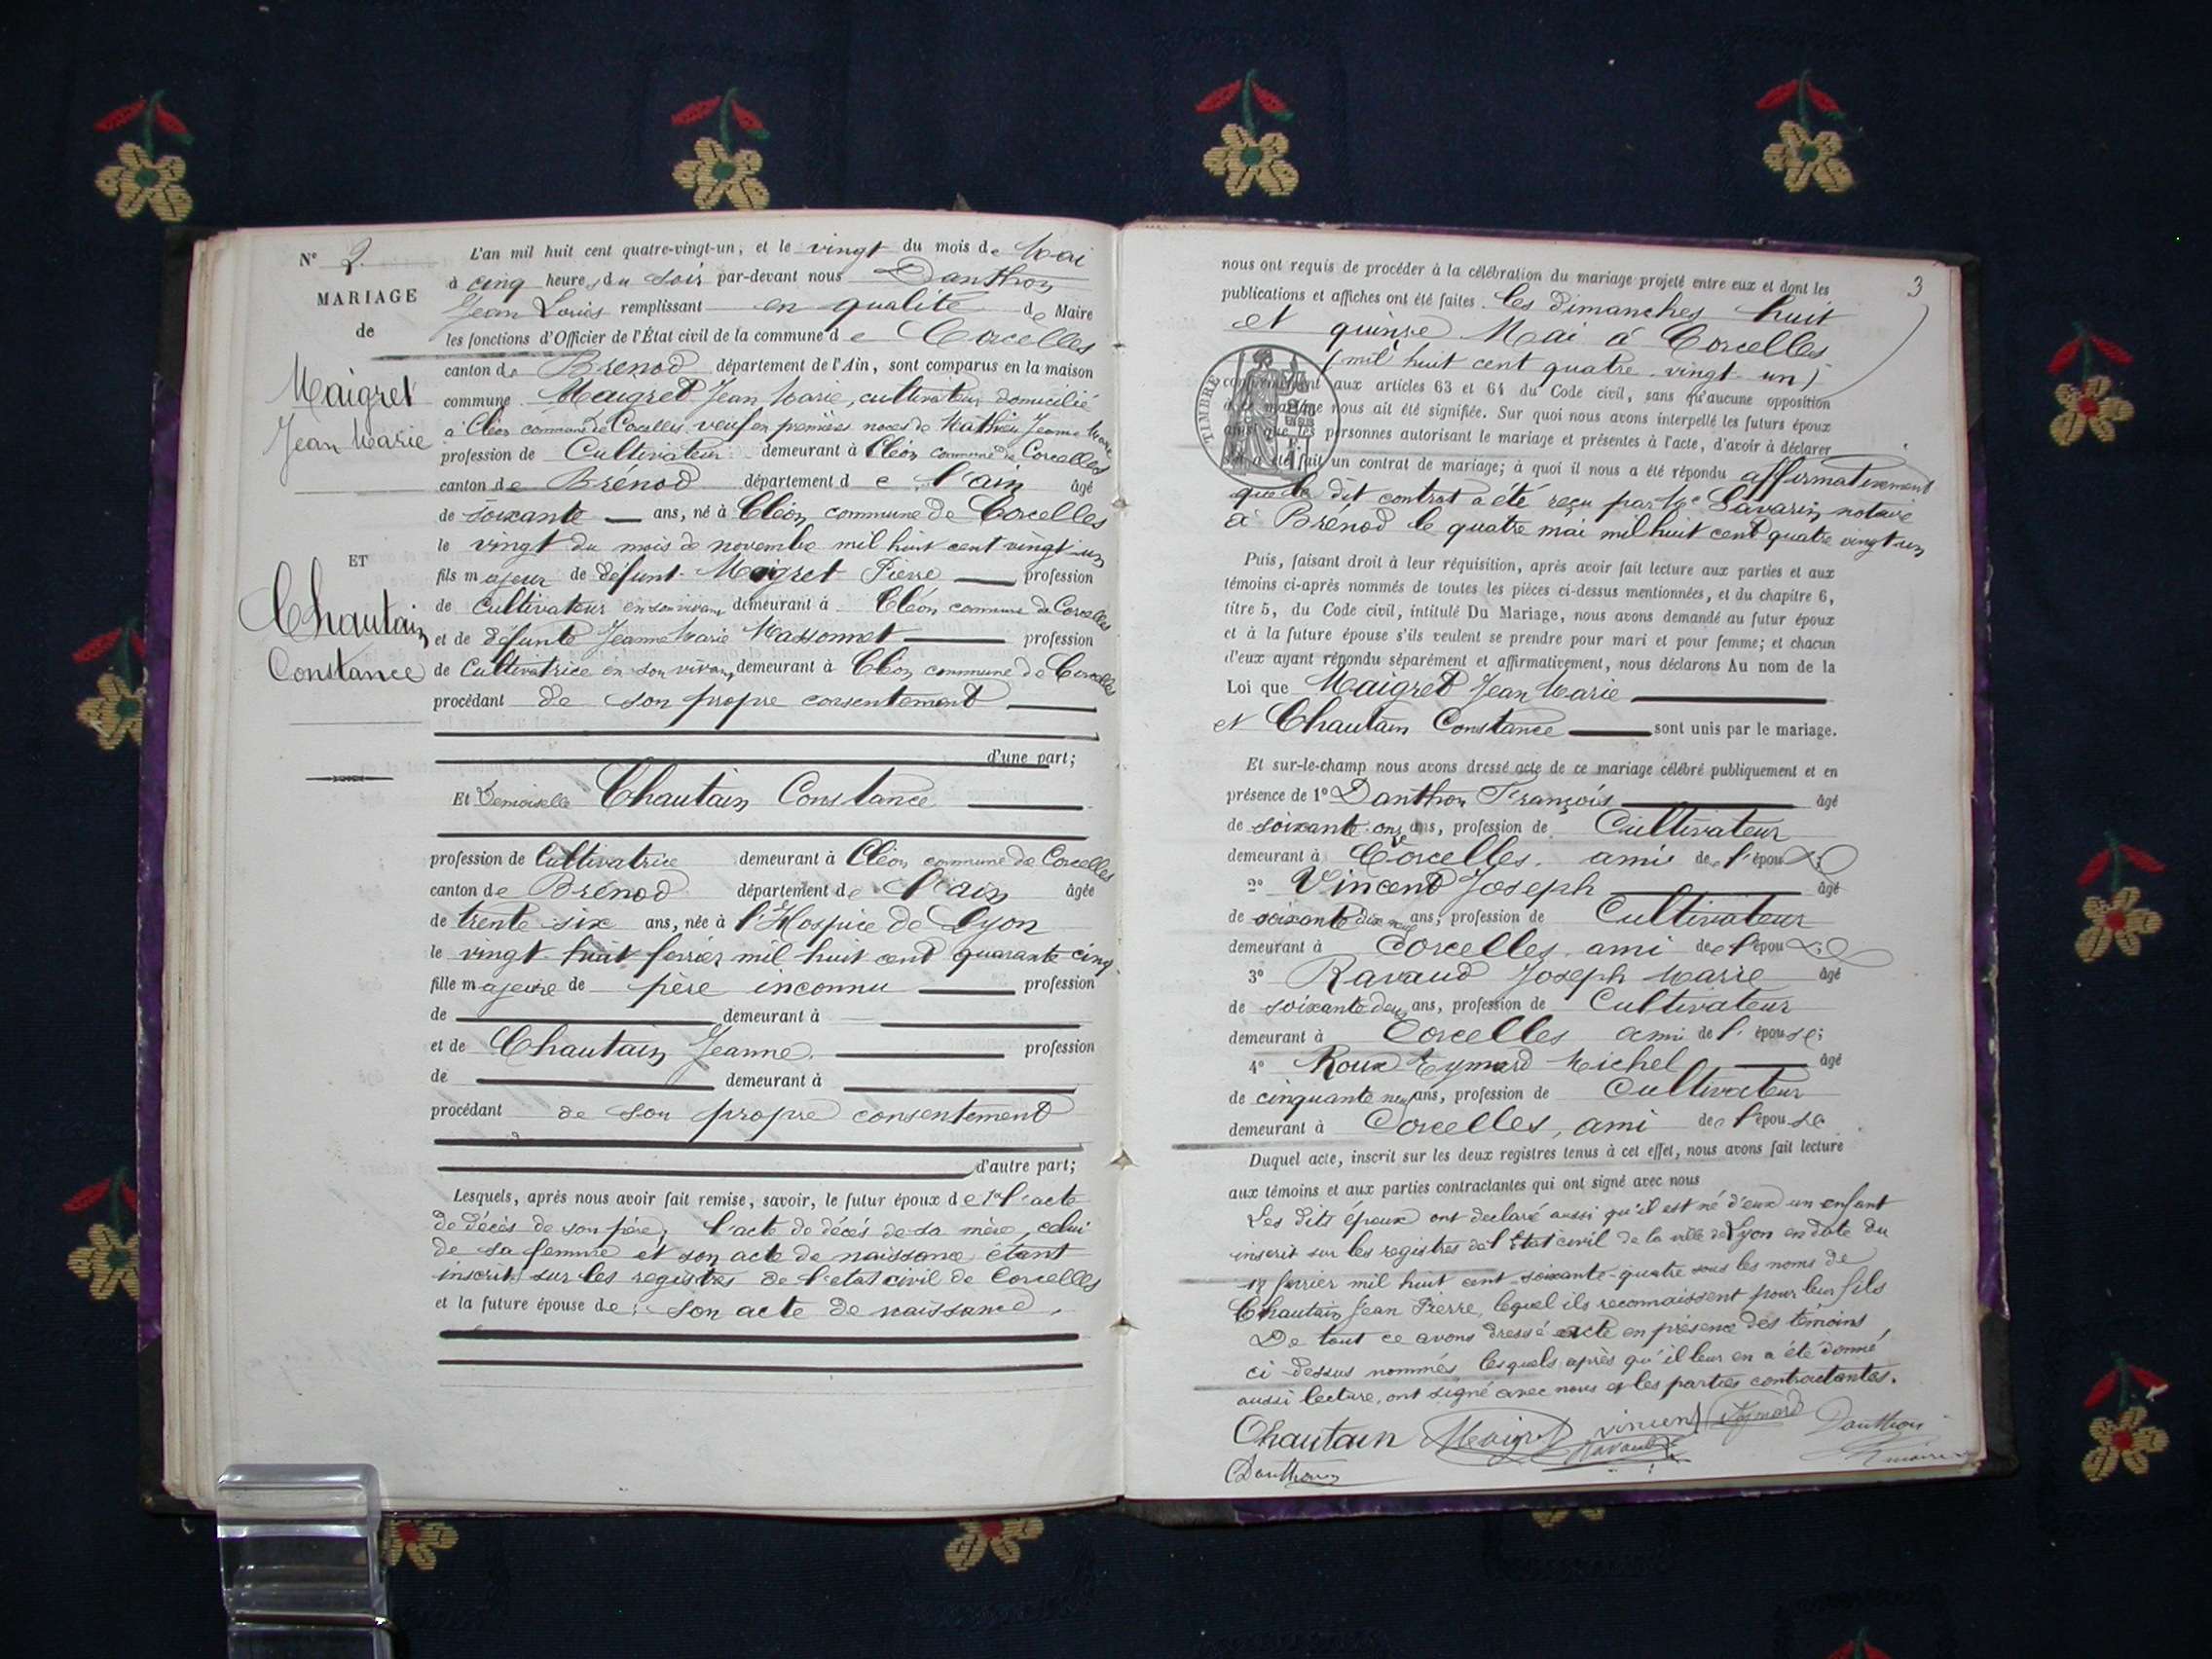 N° 2
MARIAGE
de
Maigret
Jean Marie
ET
Chautain
Constance
L'an mil huit cent quatre-vingt-un, et le vingt du mois de Mai
à cinq heures du soir par-devant nous Danthon
Jean Louis remplissant en qualité de Maire
les fonctions d'Officier de l'État civil de la commune de Corcelles
canton de Brénod département de l'Ain, sont comparus en la maison
commune. Maigret Jean Marie, cultivateur domicilié
à Cléon commune de Corcelles veuf en premières noces de Mathieu Jeanne Marie
profession de Cultivateur demeurant à Cléon commune de Corcelles
canton de Brénod département de l'ain âgé
de soixante ans, né à Cléon commune de Corcelles
le vingt du mois de novembre mil huit cent vingt-un
fils majeur de défunt Maigret Pierre profession
de Cultivateur en son vivant demeurant à Cléon commune de Corcelles
et de défunte Jeanne Marie Massonnet profession
de Cultivatrice en son vivant demeurant à Cléon commune de Corcelles
procédant de son propre consentement
d'une part;
Et Demoiselle Chautain Constance
profession de Cultivatrice demeurant à Cléon commune de Corcelles
canton de Brénod département de l'ain âgée
de trente six ans, née à l'Hospice de Lyon
le vingt huit février mil huit cent quarante cinq
fille majeure de père inconnu profession
de demeurant à
et de Chautain Jeanne. profession
de demeurant à
procédant de son propre consentement
d'autre part;
Lesquels, après nous avoir fait remise, savoir, le futur époux de l'acte
de décès de son père; l'acte de décès de sa mère, celui
de sa femme et son acte de naissance étant
inscrits sur les registres de l'etat civil de Corcelles
et la future épouse de: son acte de naissance.
3
nous ont requis de procéder à la célébration du mariage projeté entre eux et dont les
publications et affiches ont été faites les dimanches huit
et quinze Mai à Corcelles
(mil huit cent quatre-vingt-un)
TIMBRE
conformément aux articles 63 et 64 du Code civil, sans qu'aucune opposition
à ce mariage nous ait été signifiée. Sur quoi nous avons interpellé les futurs époux
ainsi que les personnes autorisant le mariage et présentes à l'acte, d'avoir à déclarer
s'il a été fait un contrat de mariage; à quoi il nous a été répondu affirmativement
que le dit contrat a été reçu par Me Savarin notaire
à Brénod le quatre mai mil huit cent quatre vingt un
Puis, faisant droit à leur réquisition, après avoir fait lecture aux parties et aux
témoins ci-après nommés de toutes les pièces ci-dessus mentionnées, et du chapitre 6,
titre 5, du Code civil, intitulé Du Mariage, nous avons demandé au futur époux
et à la future épouse s'ils veulent se prendre pour mari et pour femme; et chacun
d'eux ayant répondu séparément et affirmativement, nous déclarons Au nom de la
Loi que Maigret Jean Marie
et Chautain Constance sont unis par le mariage.
Et sur-le-champ nous avons dressé acte de ce mariage célébré publiquement et en
présence de 1° Danthon François âgé
de soixante onze ans, profession de Cultivateur
demeurant à Corcelles, ami de l'époux;
2° Vincent Joseph âgé
de soixante dix neuf ans, profession de Cultivateur
demeurant à Corcelles, ami de l'époux;
3° Ravaud Joseph Marie âgé
de soixante deux ans, profession de Cultivateur
demeurant à Corcelles ami de l'épouse;
4° Roux Eymard Michel âgé
de cinquante neuf ans, profession de Cultivateur
demeurant à Corcelles, ami de l'épouse
Duquel acte, inscrit sur les deux registres tenus à cet effet, nous avons fait lecture
aux témoins et aux parties contractantes qui ont signé avec nous
Les dits époux ont declaré aussi qu'il est né d'eux un enfant
inscrit sur les registres de l'Etat civil de la ville de Lyon en date du
février mil huit cent soixante-quatre sous les noms de
Chautain Jean Pierre, lequel ils reconnaissent pour leur fils
De tout ce avons dressé acte en présence des témoins
ci-dessus nommés, lesquels après qu'il leur en a été donné
aussi lecture, ont signé avec nous et les parties contractantes.
Chautain Maigret vincent Eymard Danthon
Ravaud maire
Danthon